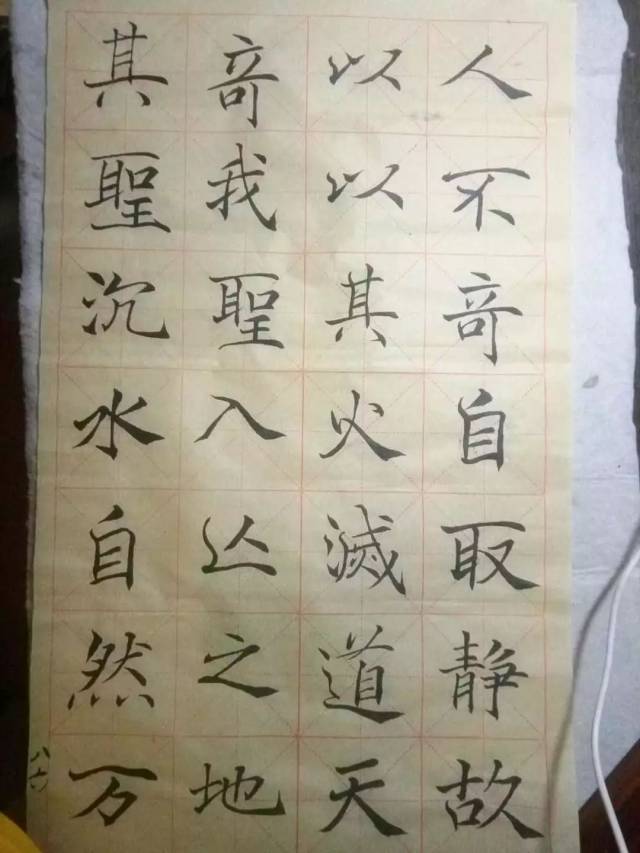 人以奇其
聖我以不
奇其聖沉
水入火自
取滅亾自
然之道静
故天地万
八十